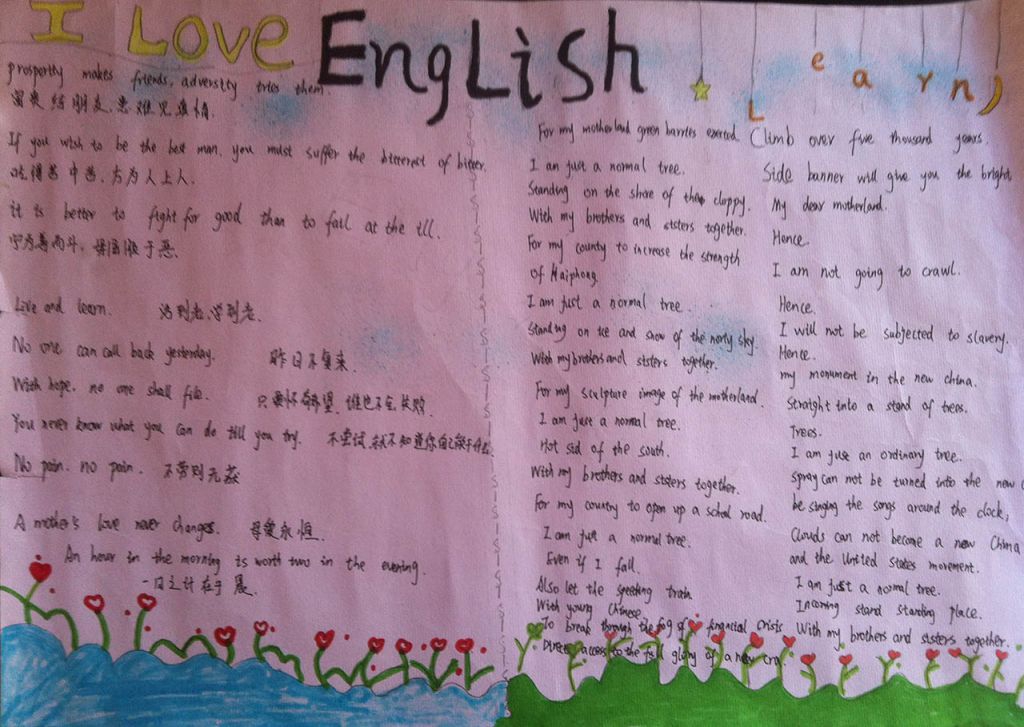 I Love English
Learn
prosperty makes friends, adversity tries them.
患难见真情.
If you wish to be the best man, you must suffer the bitterest of bitter.
吃得苦中苦,方为人上人.
it is better to fight for good than to fail at the ill.
宁为善而斗,毋屈服于恶.
Live and learn. 活到老,学到老.
No one can call back yesterday. 昨日不复来.
With hope. no one shall file. 只要怀有希望,谁也不会失败.
You never know what you can do till you try. 不尝试,就不知道你自己能干什么
No pain. no pain. 不劳则无获
A mother's love never changes. 母爱永恒.
An hour in the morning is worth two in the evening.
一日之计在于晨.
For my motherland green barries exerted
I am just a normal tree.
Standing on the shore of the choppy.
With my brothers and ststers together.
For my county to increase the strength
of Haiphong.
I am just a normal tree.
Standing on ice and snow of the norty sky.
With my brothers and ststers together.
For my sculpture image of the motherland.
I am just a normal tree.
Hot sid of the south.
With my brothers and ststers together.
For my country to open up a schol road.
I am just a normal tree.
Even if I fall.
Also let the speeting train
With young Chinese.
To break through the fog of financial crists
Direct access to the full glory of a new cra
Climb over five thousand years.
Side banner will give you the bright,
My dear motherland.
Hence.
I am not going to crawl.
Hence.
I will not be subjected to slavery.
Hence.
my monument in the new china.
Straight into a stand of trees.
Trees.
I am just an ordinary tree.
spray can not be turned into the new
be singing the songs around the clock,
Clouds can not become a new China
and the United States movement.
I am just a normal tree.
Incoming stand standing place.
With my brothers and ststers together.